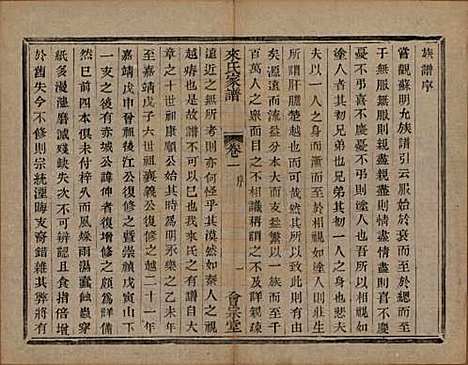 族譜序
嘗觀蘇明允族譜引云服始於衰而至於緦而至
於無服無服則親盡親盡則情盡情盡則喜不慶
憂不弔喜不慶憂不弔則塗人也吾所以相視如
塗人者其初兄弟也兄弟其初一人之身也悲夫
以一人之身而漸而至於塗人此吾譜之所以作
所謂肝膽楚越而可哉然其所以相視
矣源遠而流益分本大而支益繁以一族
至於相視之不相識稱謂之不及詳親疎
來氏家譜
卷一
序
一
會宗堂
遠近之無所考則亦何怪乎其漠然如秦人之視
越瘠也是故譜不可以不作也來氏之有譜自大
章之十世祖康順公始其時為明永樂之乙未年
至嘉靖戊子六世祖襄義公復修之越二十一年
嘉靖戊申晉槎江公復修之暨崇禎戊寅山下
文安公與赤城公諱復合輯修之一為詳備
矣已前四本凡經風雨濕蠹蝕穿
紙多漫漶磨滅殘缺失次不可辨認且子指日增
於舊失今不修則宗統湮晦支裔錯雜其弊將有